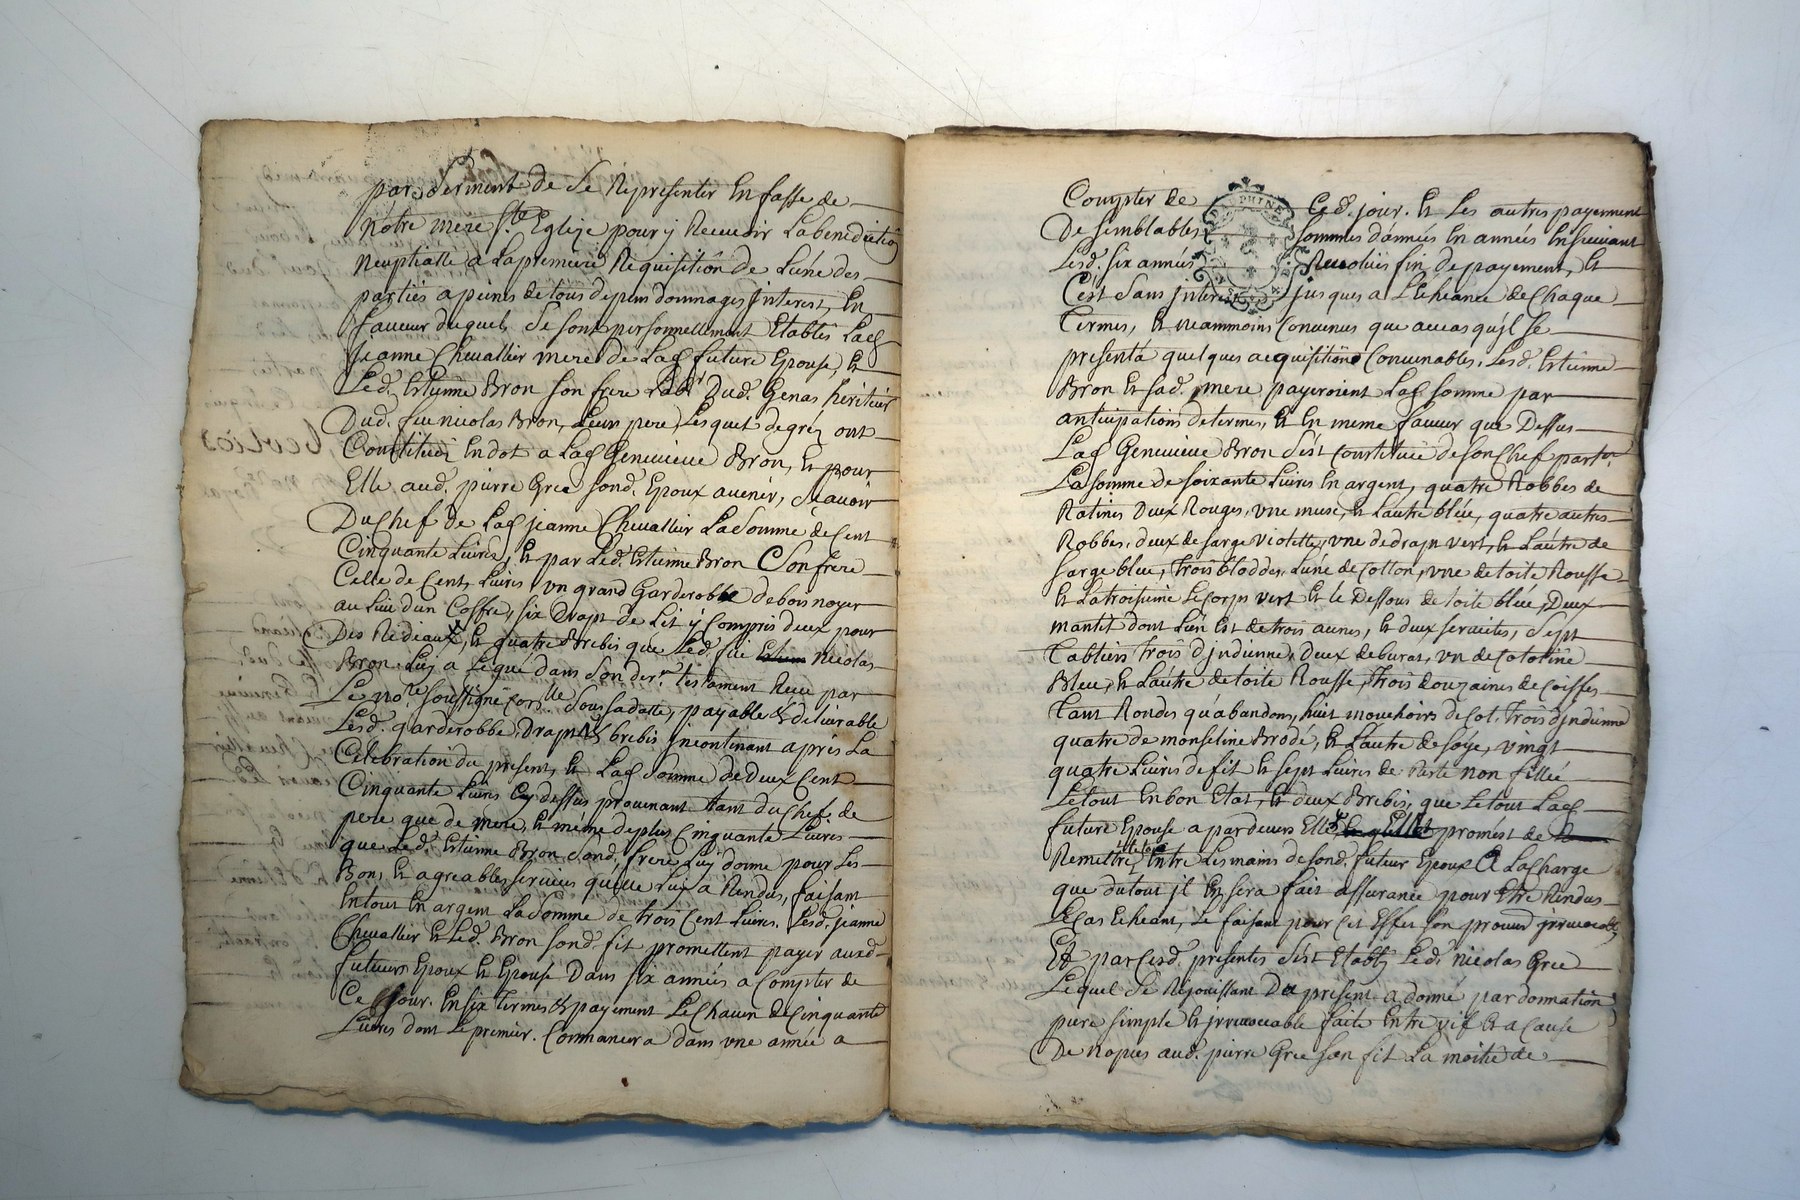 par serment de se Representer En fasse de
notre mere Ste. Eglize pour y Recevoir La benediction
Neuptialle a La premiere Requisition de Lune des
partiés a peines de tous depens dommages Interest, En
faveur duquel, se sont personnellement Etablis Lad.
Jeanne Chevallier mere de Lad. future Epouse, Et
Led. Estienne Bron son frere Lab.r Dud. Genas héritier
Dud. feu nicolas Bron, Leur pere, Lesquel de gréz ont
Constitué En dot a Lad. Genevieve Bron, Et pour
Elle aud. pierre Gree sond. Epoux avenir, sçavoir
Du chef de Lad. jeanne Chevallier La somme de Cent
Cinquante Livres, Et par Led. Estienne Bron Son frere
Celle de Cent Livres un grand Garderobbe de bois noyer
au Lieu d'un Coffre, six Drapt de Lit y Compris deux pour
Des Rediaux, Et quatre Brebis que Led. feu nicolas
Bron Luy a Legué dans son der.r testament Receu par
Le no.re soussigné sous sa datte, payable & delivrable
Lesd. garderobbe, Drapt & brebis Incontinant apres La
Celebration du present, Et Lad. somme de Deux Cent
Cinquante Livres Cy dessus provenant tant du Chef de
pere que de mere, Et même de plus Cinquante Livres
que Led. Estienne Bron sond. frere Luy donne pour Les
Bons Et agreables services quelle Luy a Rendus, faisant
En tout En argent La somme de trois Cent Livres. Lesd. jeanne
Chevallier Et Led. Bron sond. fit promettent payer auxd.
futeurs Epoux Et Epouse Dans six années a Compter de
Ce jour. En six Termes & payement Le Chacun de Cinquante
Livres dont Le premier. Commancera dans une année a
Compter de Ced. jour. Et Les autres payement
De semblables sommes d'années En années Ensuivant
Lesd. six années Revolues fin de payement, Et
C'est sans Interest jusques a L'Echeance de Chaque
Termes, Et neammoins Convenus que au cas qu'jl se
presenta quelques acquisitions Convenables, Lesd. Estienne
Bron Et sad. mere payeroient Lad. somme par
anticipations de termes, Et En meme faveur que Dessus
Lad. Genevieve Bron s'est Constituée de son Chef part.er
La somme de soixante Livres En argent, quatre Robbes de
Ratines Deux Rouges, une muse, Et Lautre bleüe, quatre autres
Robbes, deux de sarge violette, une de drap vert, Et Lautre de
sarge bleue, trois bloddes, L'une de Cotton, une de toile Rousse
Et La troisieme Le Corp vert Et le Dessous de toile bleüe, Deux
mantet dont L'un Est de trois aunes, Et deux serviettes, sept
Tabliers trois d'jndienne, deux de burat, un de Cotoline
Bleu, Et L'autre de toile Rousse, trois douzaines de Coiffes
Tant Rondes qu'abandons, huit mouchoirs de Col. trois d'jndienne
quatre de monseline Brodé, Et L'autre de soye, vingt
quatre Livres de fil Et sept Livres de Rite non fillée
Le tout En bon Etat, Et deux Brebis, que Le tout Lad.
future Epouse a par devers Elle, promest de
Remettre Entre Les mains de sond. futeur Epoux a La Charge
que du tout jl En sera fait assurance pour Etre Rendus
Le Cas Echeant, Le faisant pour Cet Effet son procur jrrevocable
Et par Cesd. presentes s'est Etably Led. nicolas Gree
Lequel se Rejouissant Du present a donné par donnation
pure simple Et jrrevocable faite Entre vif Et a Cause
De nopces aud. pierre Gree son fit La moitié de
DAUPHINE